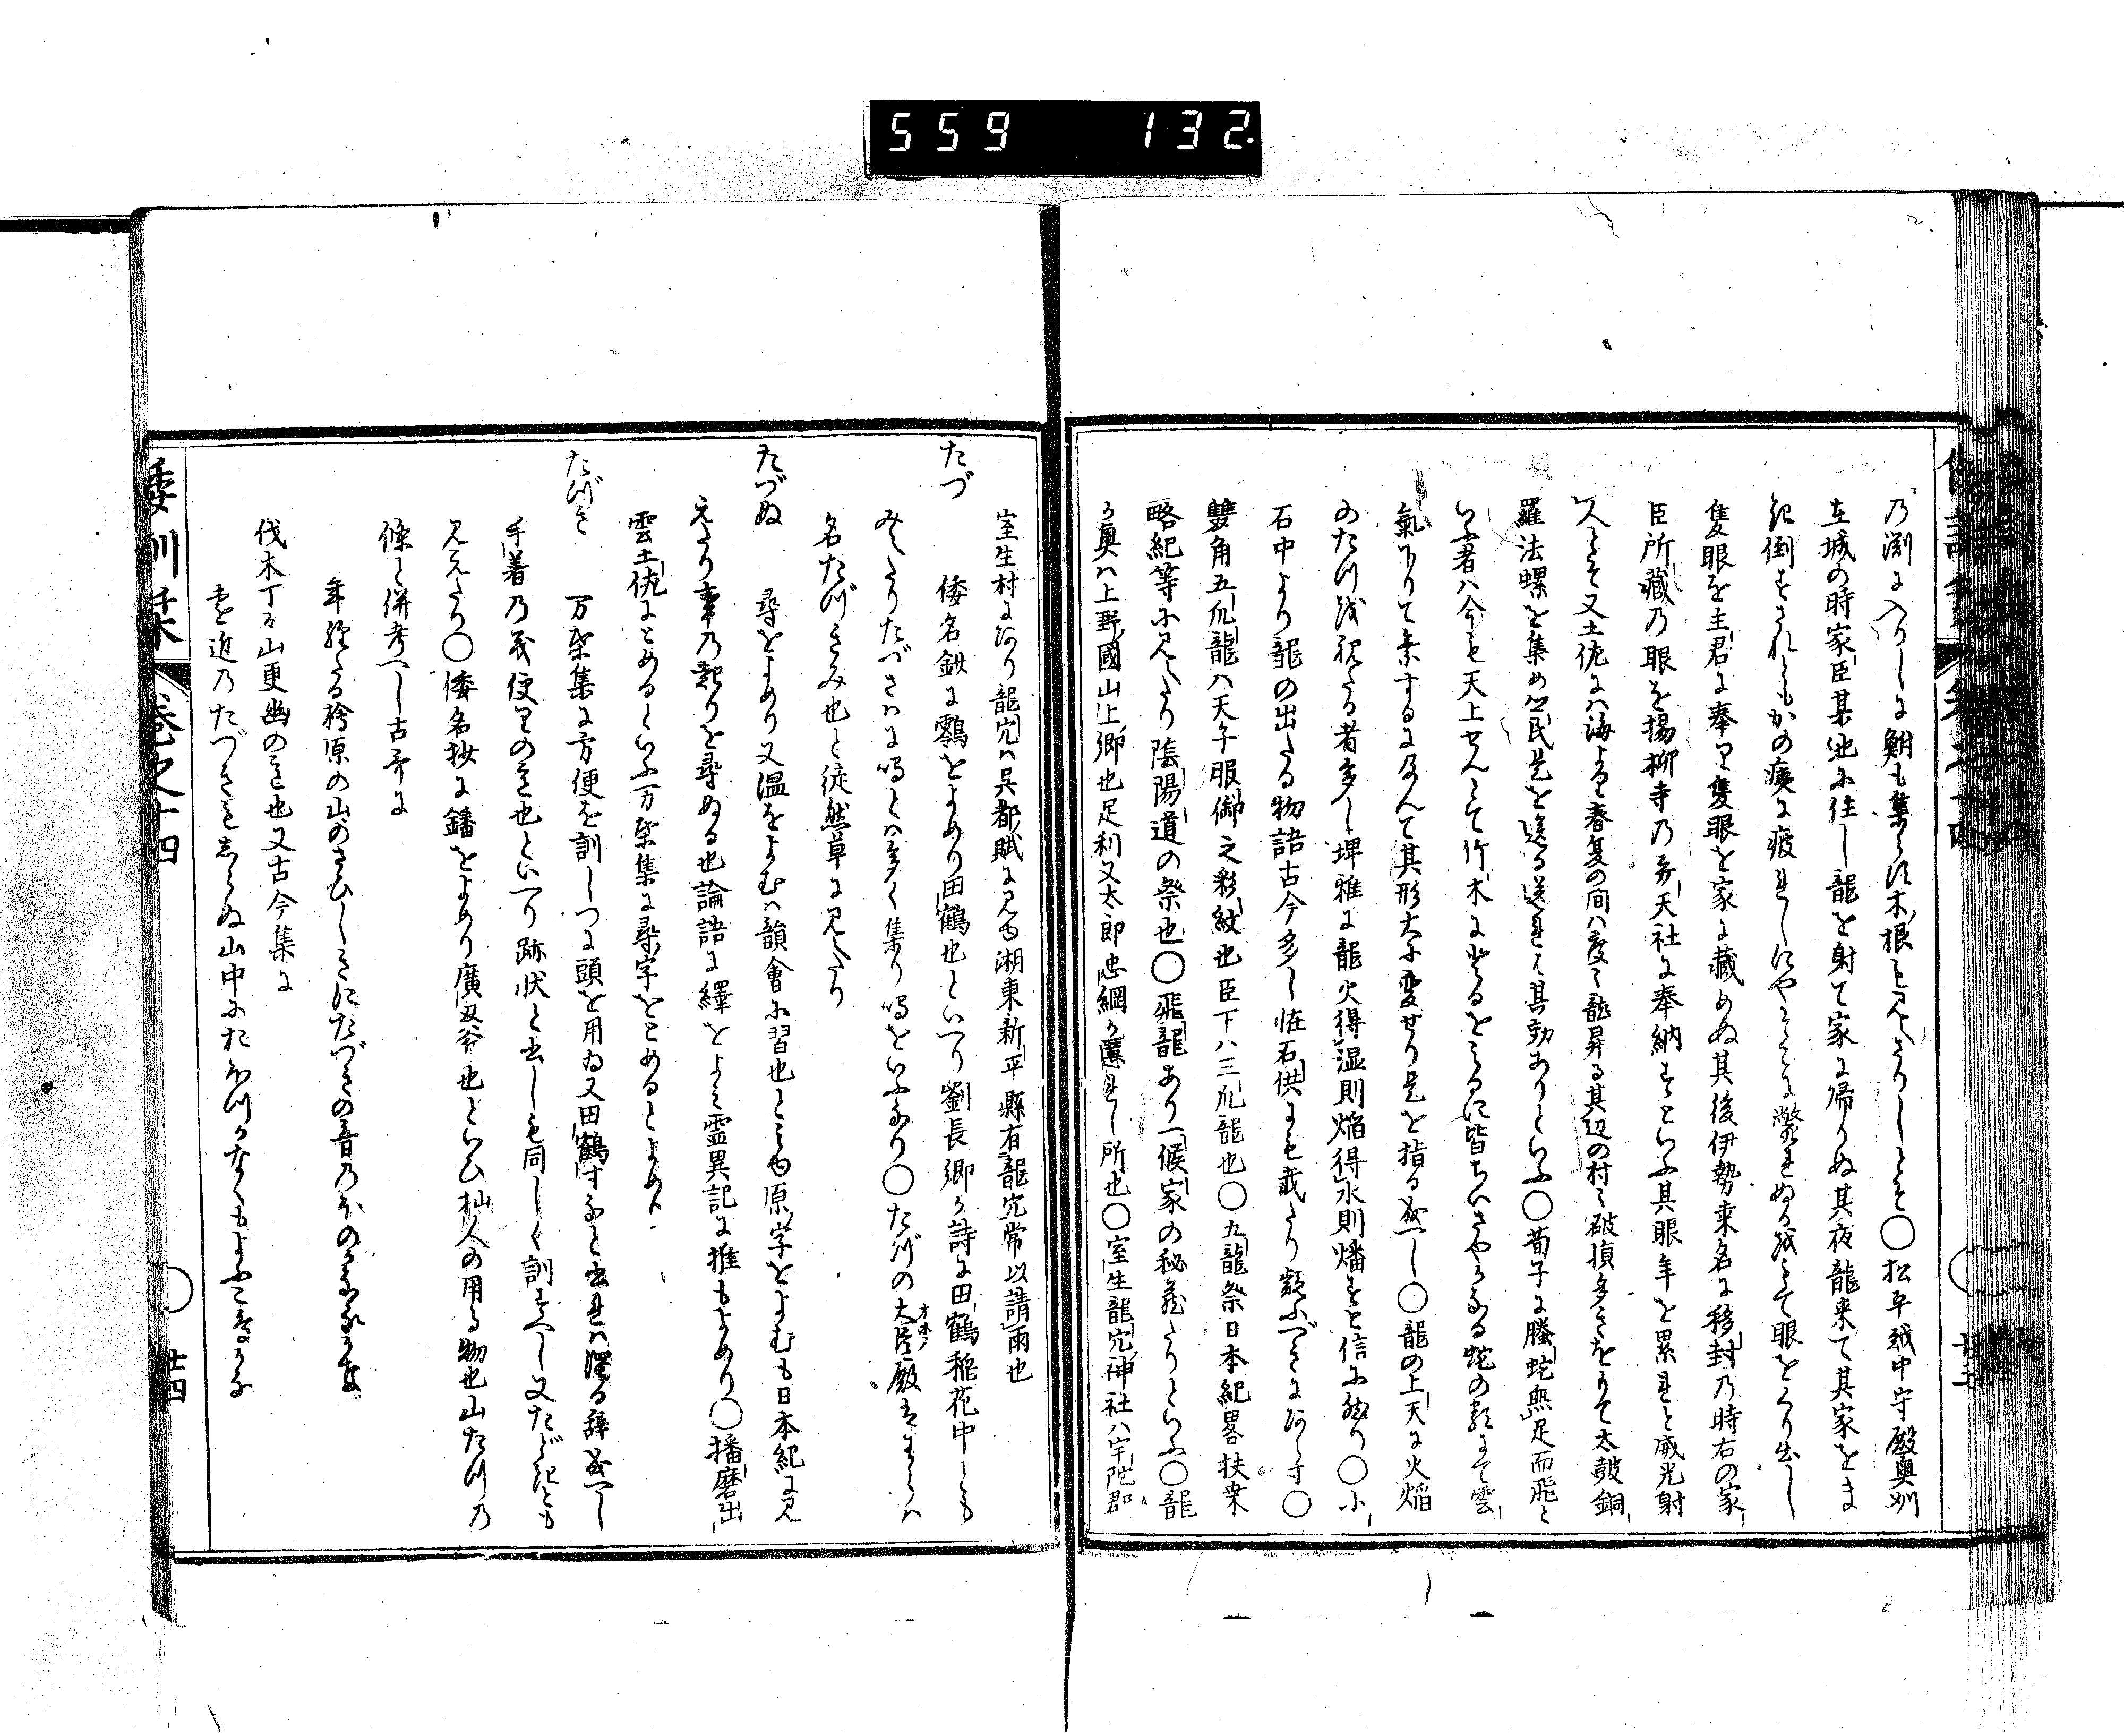 559 132.
乃淵に入りしに鮒も集らす木根も見えさりしとそ〇松平越中守殿奥州
在城の時家臣某他に住し龍を射て家に帰りぬ其夜龍来て其家をま
起倒せされともかの痍に疲れしにや
隻眼を主君に奉り隻眼を家に蔵めぬ其後伊勢桒名に移封乃時右の家
臣所蔵乃眼を揚柳寺乃弁天社に奉納せといふ其眼年を累れと威光射
人とそ又土佐には海より春夏の間は度々龍昇る其辺の村々破損多きをもて太鼓銅
羅法螺を集め公民是を送る送れは其動ありといふ〇荀子に螣蛇無足而飛と
いふ者ハ今も天上せんとて竹木に登るをみるに皆ちいさやかなる蛇の類にて雲
氣下りて乗するに及んて其形大に変せり是を指る成へし〇龍の上天に火焔
のたつ或視たる者多し埤雅に龍火得湿則焔得水則燔すと信に然り〇小
石中より龍の出たる物語古今多し恠石供にも載たり類ふへきにあらす〇
雙角五爪龍ハ天子服御之彩紋也臣下ハ三爪龍也〇九龍祭日本紀畧扶桒
略紀等に見えたり陰陽道の祭也〇飛龍あり一候家の秘蔵たりといふ〇龍
か奥ハ上野國山上郷也足利又太郎忠綱か匿れし所也〇室生龍穴神社ハ宇陀郡
倭訓栞 巻之十四 廿三
室生村にあり龍穴は呉都賦に見ゆ湘東新平縣有龍穴常以請雨也
たづ 倭名鈔に鸖をよめり田鶴也といへり劉長卿か詩に田鶴稲花中とも
みえたりたづさはに鳴とは多く集り鳴をいふなり〇たづの大臣殿
オホノ
名たづきみ也と徒然草に見えたり
たづぬ 尋をよめり又温をよむは韻會に習也とみゆ原字をよむも日本紀に見
えたり事乃起りを尋ぬる也論語に繹をよみ霊異記に推もよめり〇播磨出
雲土佐にとめるといふ万葉集に尋字をとめるとよめり
たづき 万葉集に方便を訓しつに頭を用ゐ又田鶴寸なと書れは濁る辞成へし
手着乃義便りの意也といへり跡状と書しも同しく訓すへし又たどきとも
見えたり〇倭名抄に鐇をよめり廣刄斧也といひ杣人の用る物也山たつ乃
條と併考へし古哥に
年經たる檜原の山のさひしきにたづきの音乃ほのかなるかな
伐木丁々山更幽の意也又古今集に
遠近乃たづきもしらぬ山中におほつかなくもよふこ鳥かな
倭訓栞 巻之十四 廿四